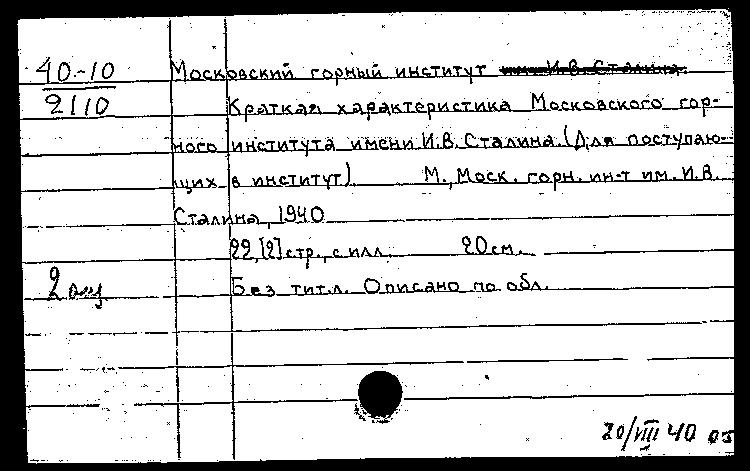 40-10 Московский горный институт ~~им. И.В. Сталина.~~
2110 Краткая характеристика Московского гор-
ного института имени И.В. Сталина. (Для поступаю-
щих в институт) М., Моск. горн. ин-т им. И.В.
Сталина, 1940
22,[2] стр., с илл. 20 см.
2 экз Без тит.л. Описано по обл.
20/VIII 40